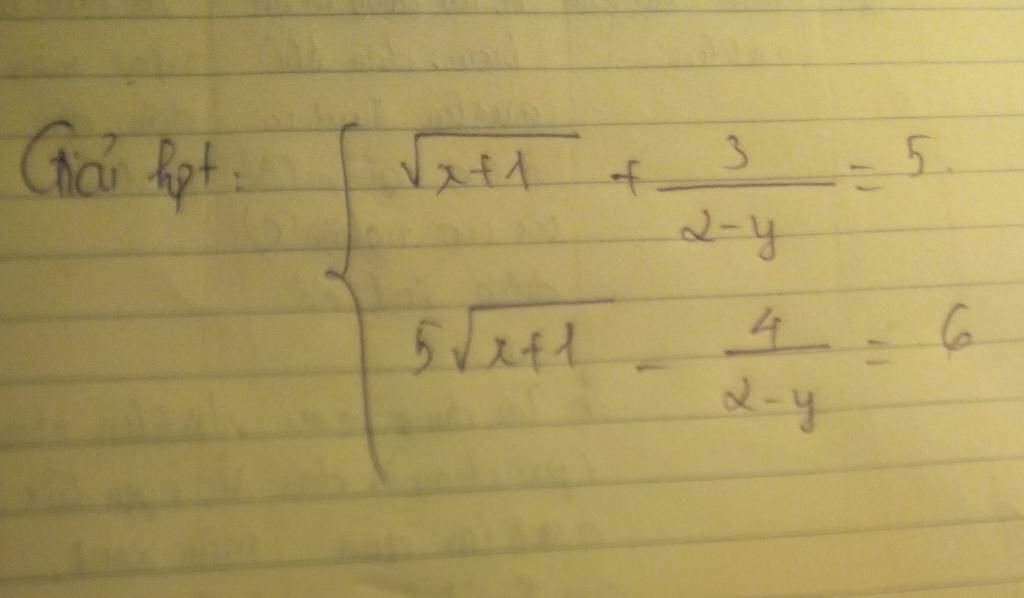 Giải hpt: { √(x+1) + 3/(2-y) = 5.
5√(x+1) - 4/(2-y) = 6